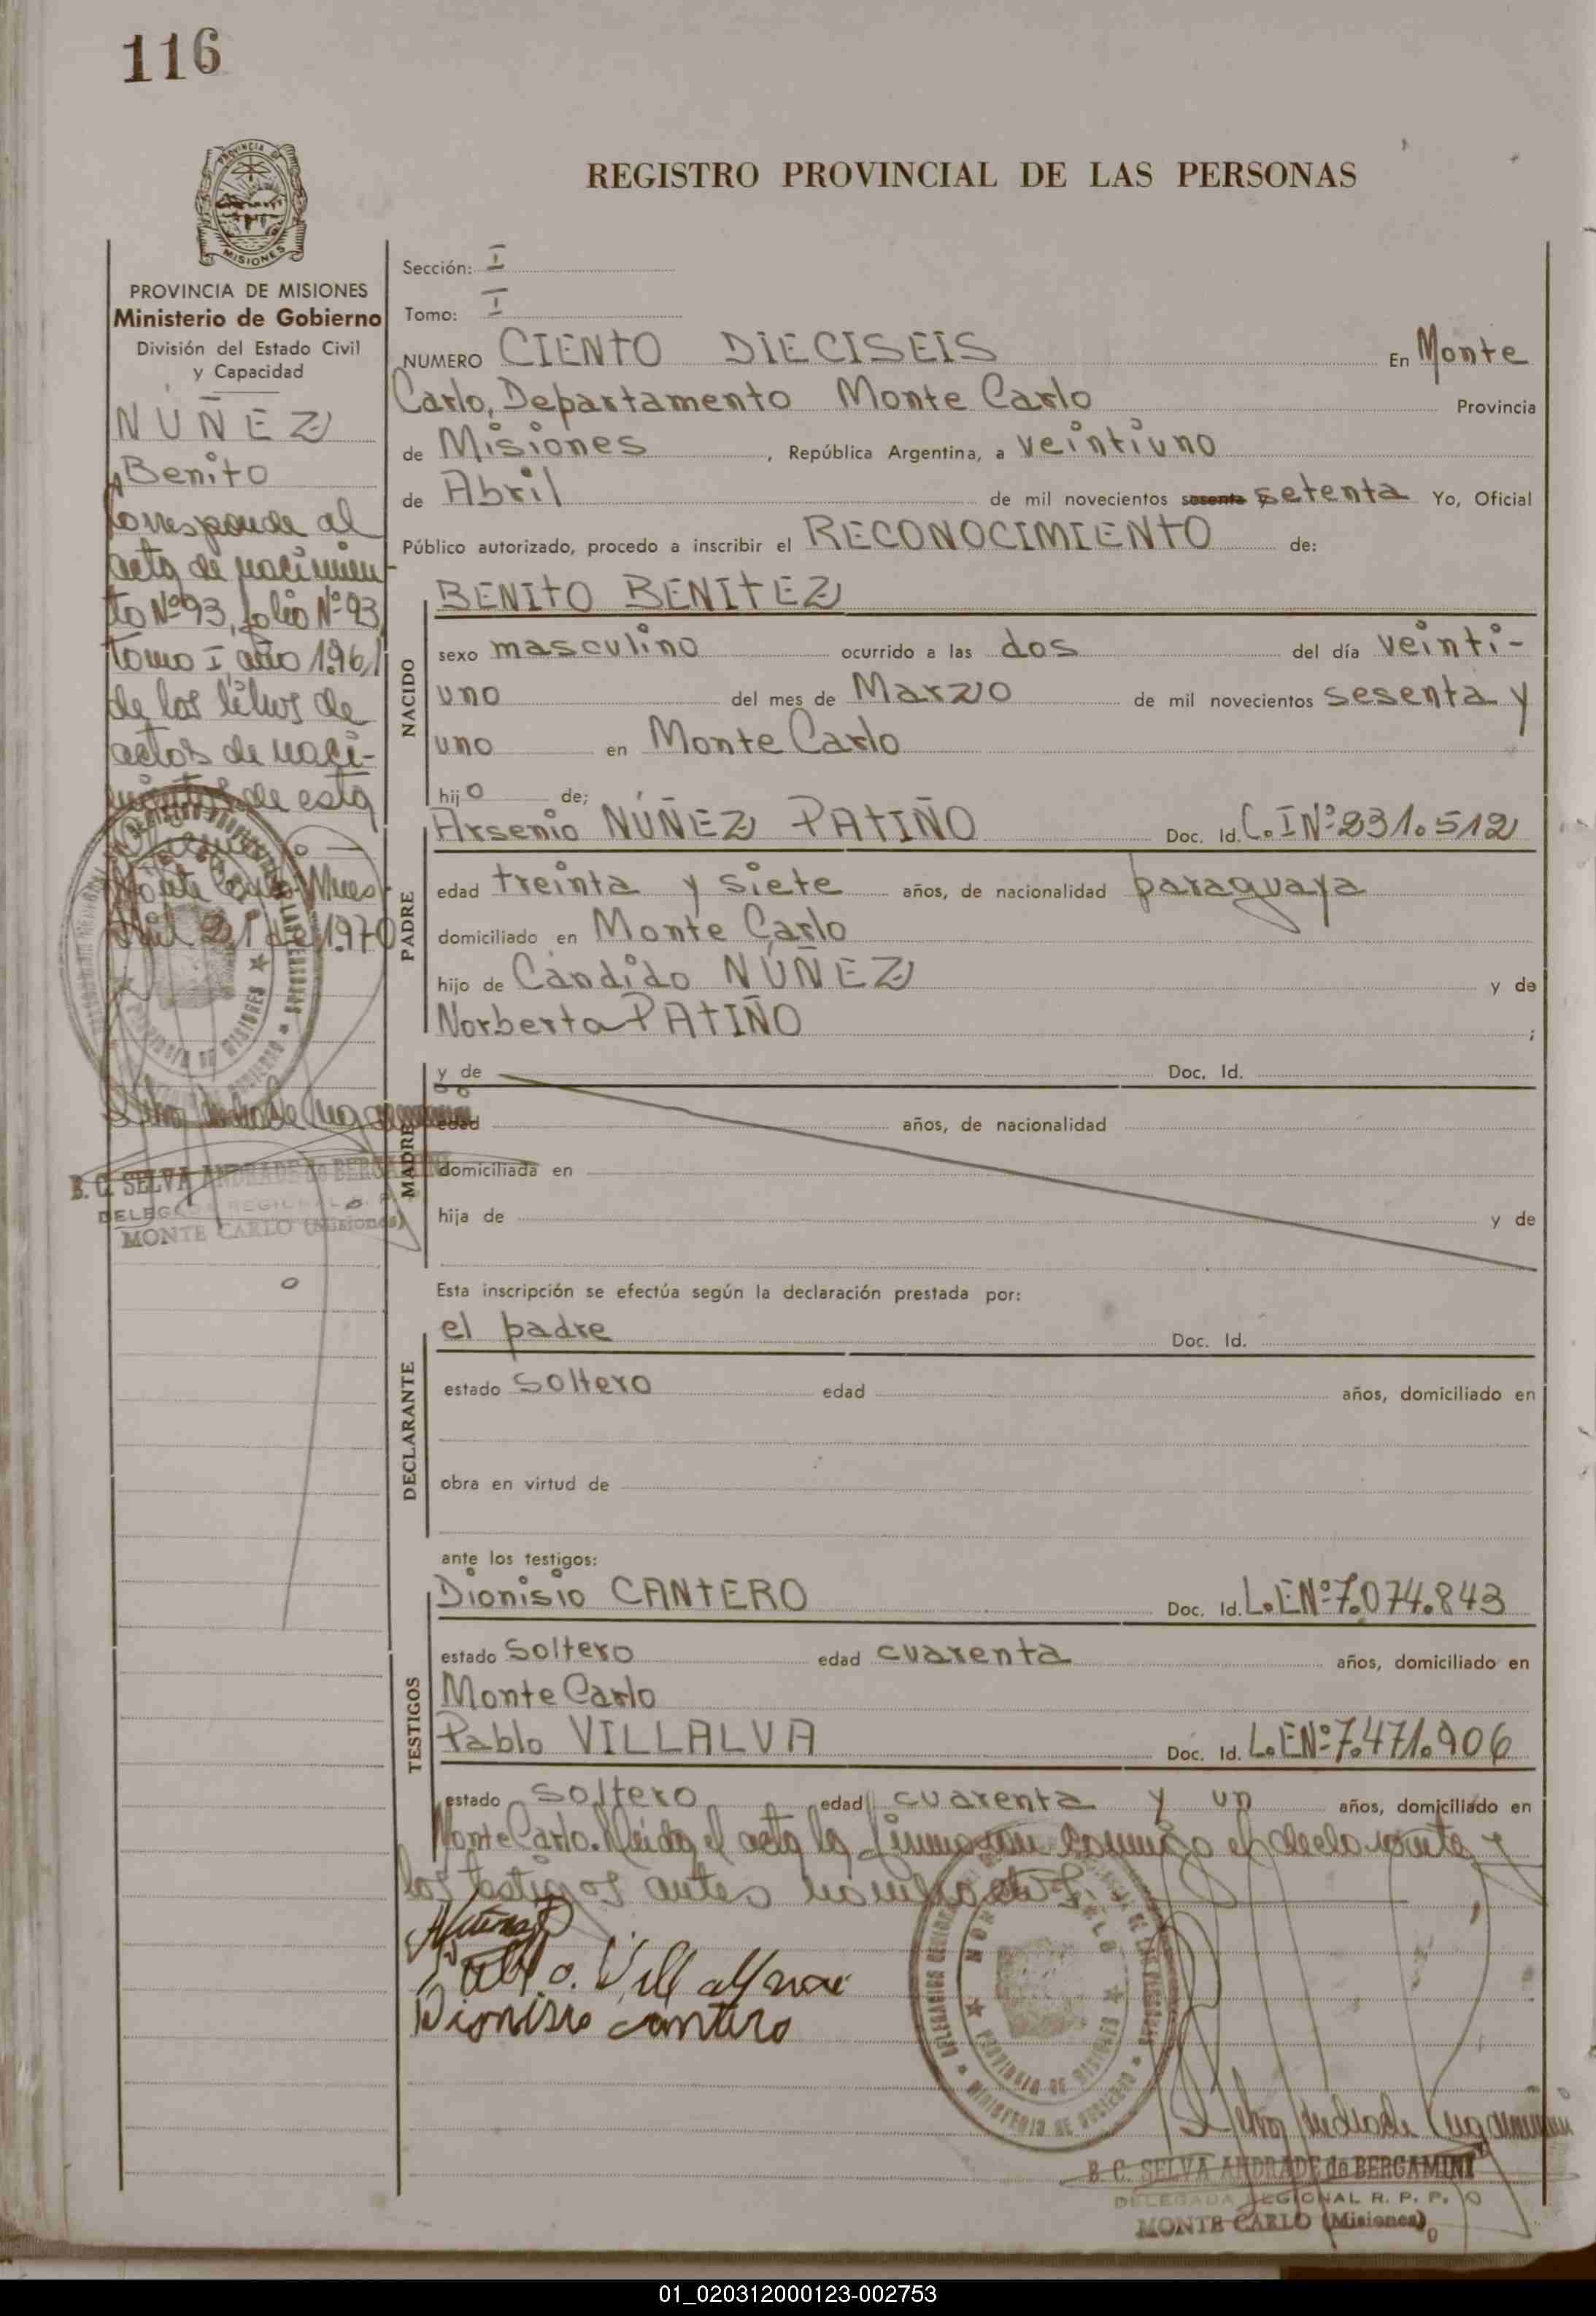 116
PROVINCIA DE MISIONES
Ministerio de Gobierno
División del Estado Civil
y Capacidad
NÚÑEZ
Benito
Corresponde al
acta de nacimien-
to Nº 93, folio Nº 93
tomo I, año 1.961
de los libros de
actos de naci-
mientos de esta
Monte Carlo, Mnes
Abril 21 de 1.970
B. C. SELVA ANDRADE de BERGAMINI
DELEGADA REGIONAL R. P. P.
MONTE CARLO (Misiones)
REGISTRO PROVINCIAL DE LAS PERSONAS
Sección: I
Tomo: I
NUMERO CIENTO DIECISEIS En Monte
Carlo, Departamento Monte Carlo Provincia
de Misiones, República Argentina, a veintiuno
de Abril de mil novecientos sesenta setenta Yo, Oficial
Público autorizado, procedo a inscribir el RECONOCIMIENTO de:
NACIDO
BENITO BENITEZ
sexo masculino ocurrido a las dos del día veinti-
uno del mes de Marzo de mil novecientos sesenta y
uno en Monte Carlo
hijo de;
PADRE
Arsenio NÚÑEZ PATIÑO Doc. Id. C. I Nº 231.512
edad treinta y siete años, de nacionalidad paraguaya
domiciliado en Monte Carlo
hijo de Cándido NÚÑEZ y de
Norberta PATIÑO ;
MADRE
y de Doc. Id.
edad años, de nacionalidad
domiciliada en
hija de y de
Esta inscripción se efectúa según la declaración prestada por:
DECLARANTE
el padre Doc. Id.
estado soltero edad años, domiciliado en
obra en virtud de
ante los testigos:
TESTIGOS
Dionisio CANTERO Doc. Id. L. E Nº 7.074.843
estado soltero edad cuarenta años, domiciliado en
Monte Carlo
Pablo VILLALVA Doc. Id. L. E Nº 7.471.906
estado soltero edad cuarenta y un años, domiciliado en
Monte Carlo. Leída el acta la firmaron conmigo el declarante y
los testigos antes nombrados
Dionisio Cantero
B. C. SELVA ANDRADE de BERGAMINI
DELEGADA REGIONAL R. P. P.
MONTE CARLO (Misiones)
01_020312000123-002753